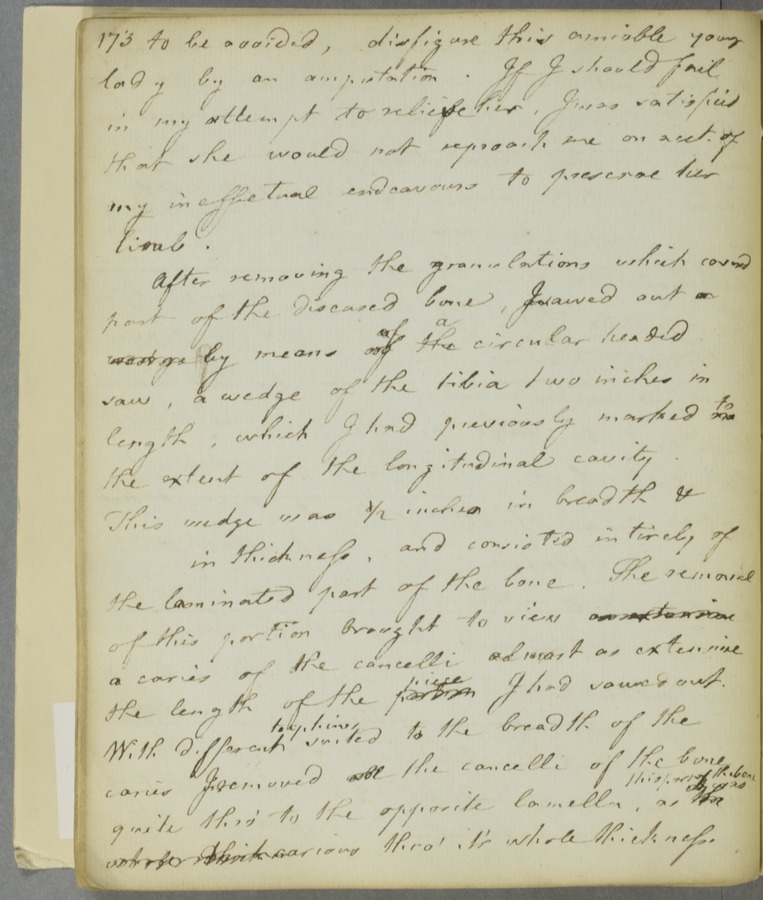 173 to be avoided, disfigure this amiable young
lady by an amputation. If I should fail
in my attempt to relieve her, I was satisfied
that she would not reproach me on acct. of
my ineffectual endeavours to preserve her
limb.
After removing the granulations which coverd
part of the diseased bone, I sawed out a
wedge by means of the a circular headed
saw, a wedge of the tibia two inches in
length, which I had previously marked to
the extent of the longitudinal cavity.
This wedge was ½ inches in breadth &
in thickness, and consisted intirely of
the laminated part of the bone. The removal
of this portion brought to view an extensive
a caries of the cancelli almost as extensive
the length of the portion piece I had sawed out.
With different trephines suited to the breadth of the
caries I removed all the cancelli of the bone
quite thro' to the opposite lamella, as this part of the bone was
carious thro' it's whole thickness